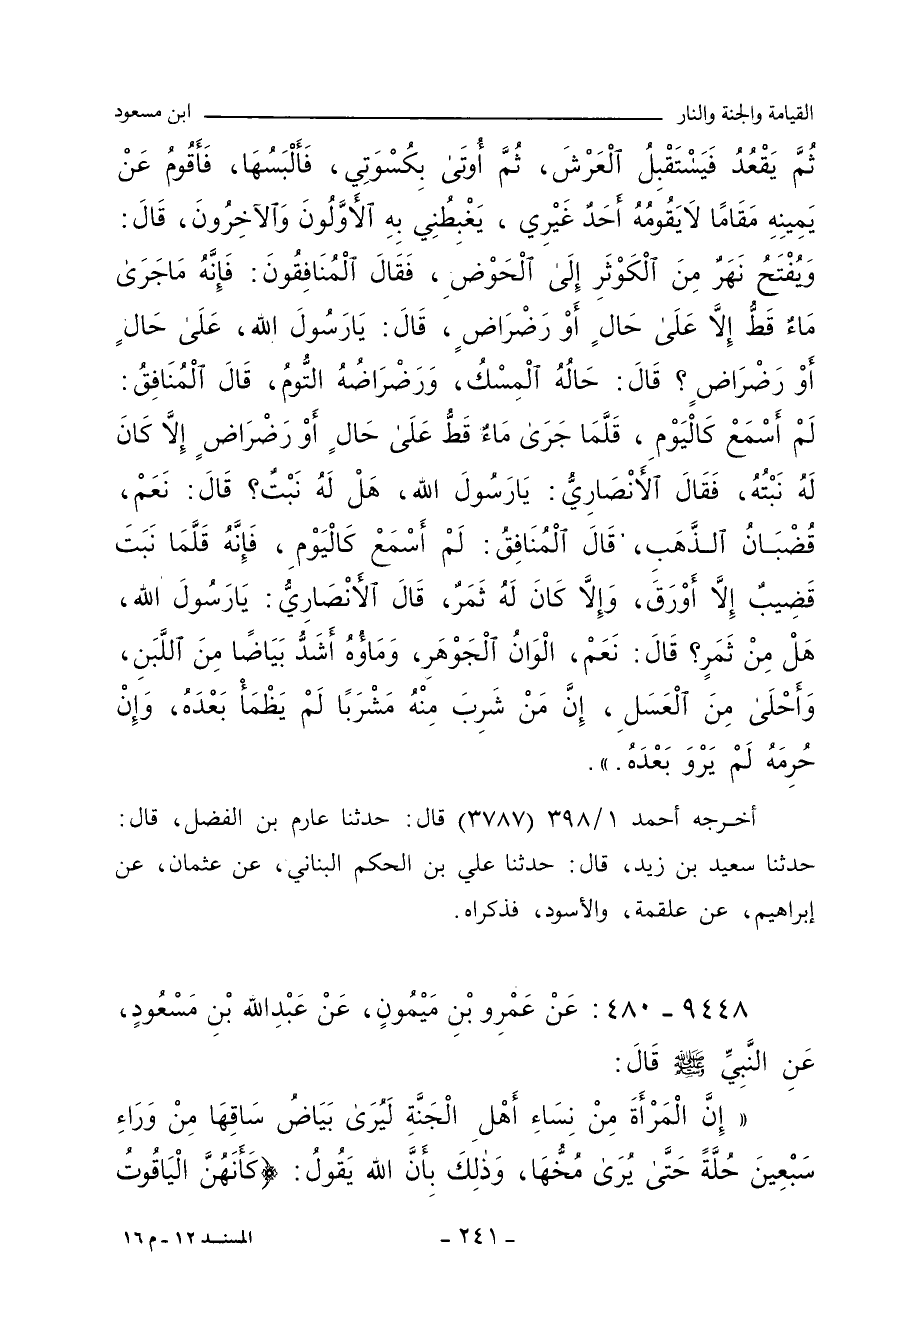 القيامة والجنة والنار ابن مسعود
ثُمَّ يَقْعُدُ فَيَسْتَقْبِلُ ٱلْعَرْشَ، ثُمَّ أُوتَىٰ بِكُسْوَتِي، فَأَلْبَسُهَا، فَأَقُومُ عَنْ
يَمِينِهِ مَقَامًا لَايَقُومُهُ أَحَدٌ غَيْرِي، يَغْبِطُنِي بِهِ ٱلْأَوَّلُونَ وَٱلآخِرُونَ، قَالَ:
وَيُفْتَحُ نَهَرٌ مِنَ ٱلْكَوْثَرِ إِلَىٰ ٱلْحَوْضِ، فَقَالَ ٱلْمُنَافِقُونَ: فَإِنَّهُ مَاجَرَىٰ
مَاءٌ قَطُّ إِلَّا عَلَىٰ حَالٍ أَوْ رَضْرَاضٍ، قَالَ: يَارَسُولَ الله، عَلَىٰ حَالٍ
أَوْ رَضْرَاضٍ؟ قَالَ: حَالُهُ ٱلْمِسْكُ، وَرَضْرَاضُهُ التُّومُ، قَالَ ٱلْمُنَافِقُ:
لَمْ أَسْمَعْ كَالْيَوْمِ، قَلَّمَا جَرَىٰ مَاءٌ قَطُّ عَلَىٰ حَالٍ أَوْ رَضْرَاضٍ إِلَّا كَانَ
لَهُ نَبْتُهُ، فَقَالَ ٱلْأَنْصَارِيُّ: يَارَسُولَ الله، هَلْ لَهُ نَبْتٌ؟ قَالَ: نَعَمْ،
قُضْبَانُ ٱلذَّهَبِ، قَالَ ٱلْمُنَافِقُ: لَمْ أَسْمَعْ كَالْيَوْمِ، فَإِنَّهُ قَلَّمَا نَبَتَ
قَضِيبٌ إِلَّا أَوْرَقَ، وَإِلَّا كَانَ لَهُ ثَمَرٌ، قَالَ ٱلْأَنْصَارِيُّ: يَارَسُولَ الله،
هَلْ مِنْ ثَمَرٍ؟ قَالَ: نَعَمْ، الْوَانُ ٱلْجَوْهَرِ، وَمَاؤُهُ أَشَدُّ بَيَاضًا مِنَ ٱللَّبَنِ،
وَأَحْلَىٰ مِنَ ٱلْعَسَلِ، إِنَّ مَنْ شَرِبَ مِنْهُ مَشْرَبًا لَمْ يَظْمَأْ بَعْدَهُ، وَإِنْ
حُرِمَهُ لَمْ يَرْوَ بَعْدَهُ.».
أخرجه أحمد ٣٩٨/١ (٣٧٨٧) قال: حدثنا عارم بن الفضل، قال:
حدثنا سعيد بن زيد، قال: حدثنا علي بن الحكم البناني، عن عثمان، عن
إبراهيم، عن علقمة، والأسود، فذكراه.
٩٤٤٨ - ٤٨٠: عَنْ عَمْرِو بْنِ مَيْمُونٍ، عَنْ عَبْدِالله بْنِ مَسْعُودٍ،
عَنِ النَّبِيِّ ﷺ قَالَ:
« إِنَّ الْمَرْأَةَ مِنْ نِسَاءِ أَهْلِ الْجَنَّةِ لَيُرَىٰ بَيَاضُ سَاقِهَا مِنْ وَرَاءِ
سَبْعِينَ حُلَّةً حَتَّىٰ يُرَىٰ مُخُّهَا، وَذٰلِكَ بِأَنَّ الله يَقُولُ: ﴿كَأَنَهُنَّ الْيَاقُوتُ
- ٢٤١ - المسند ١٢ - م ١٦